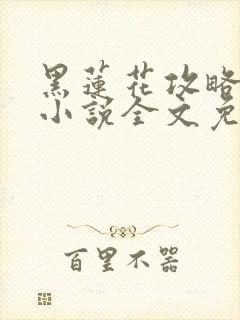 黑蓮花攻略
小說全文免
百里不器